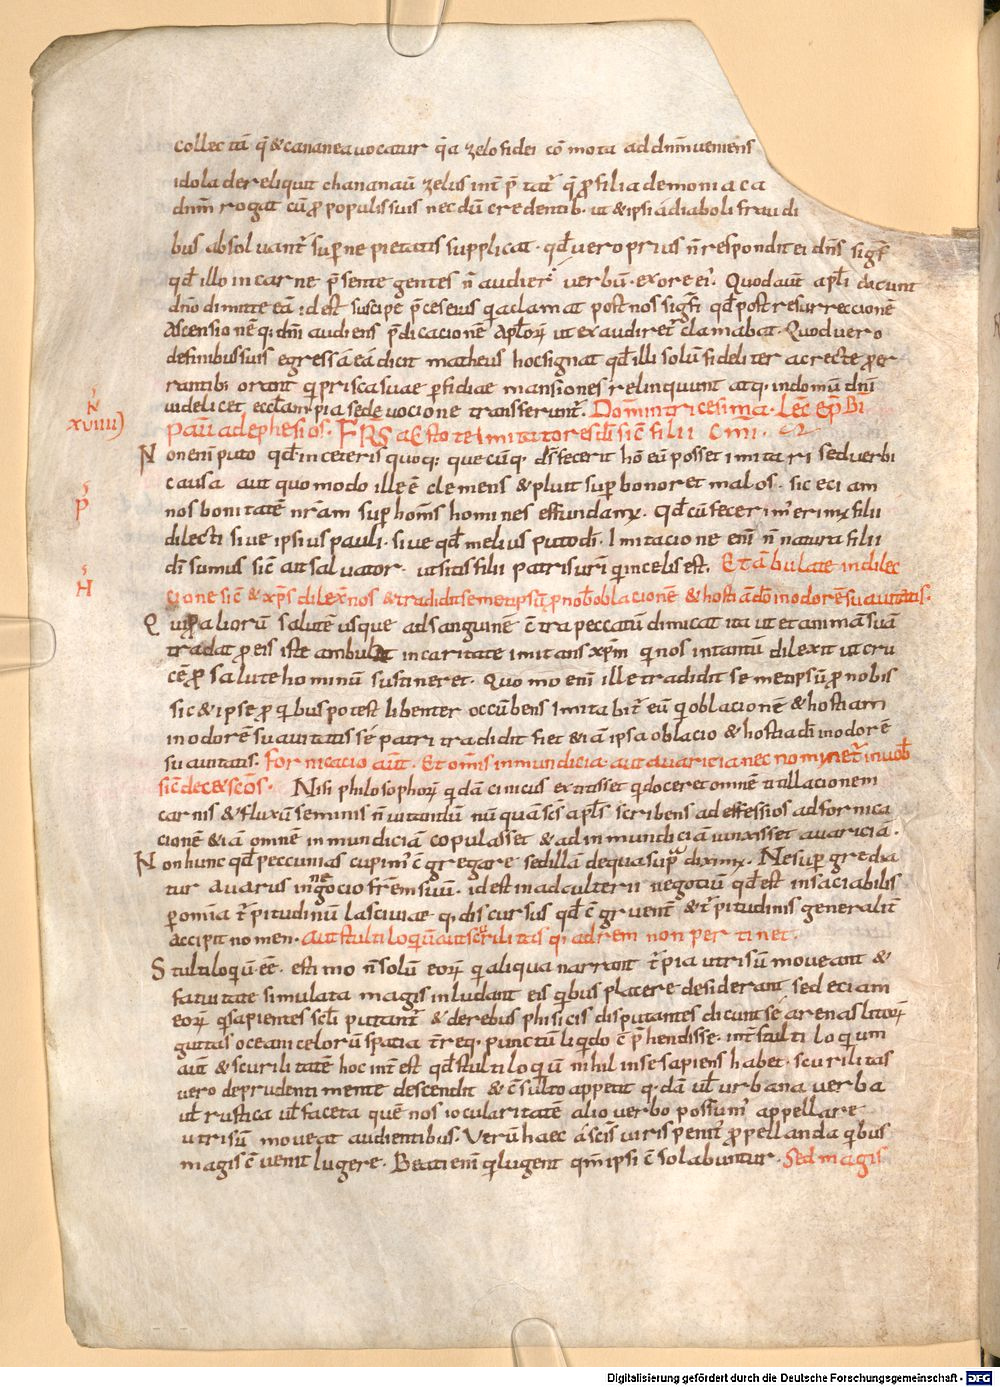 collectã q̃ &cananea uocatur q̃a zelo fidei cõmota ad dnm̃ ueniens
idola dereliquit chananaũ zelus int̃p̃tat᷒ q̃ ꝓ filia demoniaca
dnm̃ rogat cũ ꝓ populis suis necdũ credentib· ut & ipsi a diaboli fraudi
bus absoluant᷒ sup̃ne pietatis supplicat· qđ uero prius ñ respondit ei dñs sigf̃
qđ illo in carne p̃sente gentes ñ audier̃ uerbũ· ex ore ei᷒. Quod aut̃ apl̃i dicunt
dño dimitte eã idest suscipe p̃ces eius q̃a clamat post nos sigf̃t qđ post resurreccionẽ
ascensionẽ q; dñi audiens p̃dicacionẽ apl̃oꝝ ut exaudiret᷒ clamabat· Quod uero
de finibus suis egressã eã dicit matheus hoc signat qđ illi solũ fideliter ac recte ꝓ er
rantib; orant qui prisca suae ꝑfidiae mansiones relinquunt atq; in domũ dñi
uidelicet eccl̃am pia sede uocione transferunt᷒. Domin tricesima· Lec̃ ep̃ Bi
Pauli ad ephesios. FRS aEstote imitatores dĩ sic̃ filii cmi̅.
N
xviiii)
Non enĩ puto qđ in ceteris quoq; quecũq; ds̃ fecerit hõ eũ posset imitari sed uerbi
causa aut quomodo ille ẽ clemens & pluit sup bonos et malos· sic eciam
P
nos bonitatẽ nrãm sup hom̃s homines effundamꝰ· qđ cũ fecerim᷒ erimꝰ filii
dilecti siue ipsius pauli· siue qđ melius puto dĩ· Imitacione enĩ ñ natura filii
dĩ sumus sic̃ ait saluator· ut sitis filii patris uri̅ qui in celis est. Et ambulate in dilec
H
cione sic̃ & xp̃s dilexit nos & tradidit semetipsũ ꝓ nob̃ oblacionẽ & hostiã dõ in odorẽ suauitatis·
Qui ꝓ aliorũ salutẽ usque ad sanguinẽ cõtra peccatũ dimicat ita ut et animam suã
tradat ꝓ eis iste ambulat in caritate imitans xp̃m qui nos intantũ dilexit ut cru
cẽ ꝓ salute hominũ sustineret· Quomo enĩ ille tradidit semetipsũ ꝓ nobis
sic & ipse ꝓ quibus potest libenter occũbens imitabit᷒ eũ qui oblacionẽ & hostiam
in odorẽ suauitatis se patri tradidit fiet & iã ipsa oblacio & hostia dĩ in odorẽ
suauitatis· Fornicacio aut̃· Et om̃is inmundicia aut auaricia nec nominet᷒ in uob̃
sic̃ decet scõs· Nisi philosophoꝝ quidã cinicus extitisset qui doceret omnẽ titillacionem
carnis & fluxũ seminis ñ uitandũ nũquã scs̃ apl̃s scribens ad effessios ad fornica
cionẽ & iã omnẽ inmundiciã copulasset & ad inmundiciã uinxisset auariciã.
Non hunc qđ peccunias cupim᷒ cõgregare sed illã de qua supra diximꝰ. Ne supergredia
tur auarus in negocio frẽm suum· id est in adculterii negotiũ qđ est insaciabilis
ꝑ omnia t᷒pitudinũ lasciuiae q; discursus qđ cõgruent̃ & t᷒pitudinis generalit̃
accipit nomen· aut stultiloquiũ aut scurilitas quę ad rem non pertinet.
Stultiloquiũ ẽẽ· estimo ñ solũ eoꝝ qui aliqua narrant t᷒pia ut risũ moueant &
fatuitate simulata magis inludant eis quibus placere desiderant sed eciam
eoꝝ qui sapientes scl̃i putant᷒ & de rebus phisicis disputantes dicunt se arenas litoꝝ
guttas oceani celorũ spatia t᷒req; punctũ liquido cõp̃hendisse· int̃ stultiloquium
aut̃ & scurilitatẽ hoc int̃est qđ stultiloquiũ nihil in se sapiens habet· scurilitas
uero de prudenti mente descendit & cõsulto appetit quędã ul̃ urbana uerba
ul̃ rustica ul̃ faceta quẽ nos iocularitatẽ alio uerbo possum᷒ appellare
ut risũ moueat audientibus· Verũ haec a scĩs uiris penit᷒ ꝓpellanda quibus
magis cõuenit lugere· Beati enĩ qui lugent qm̃ ipsi cõsolabuntur· Sed magis
Digitalisierung gefördert durch die Deutsche Forschungsgemeinschaft - DFG